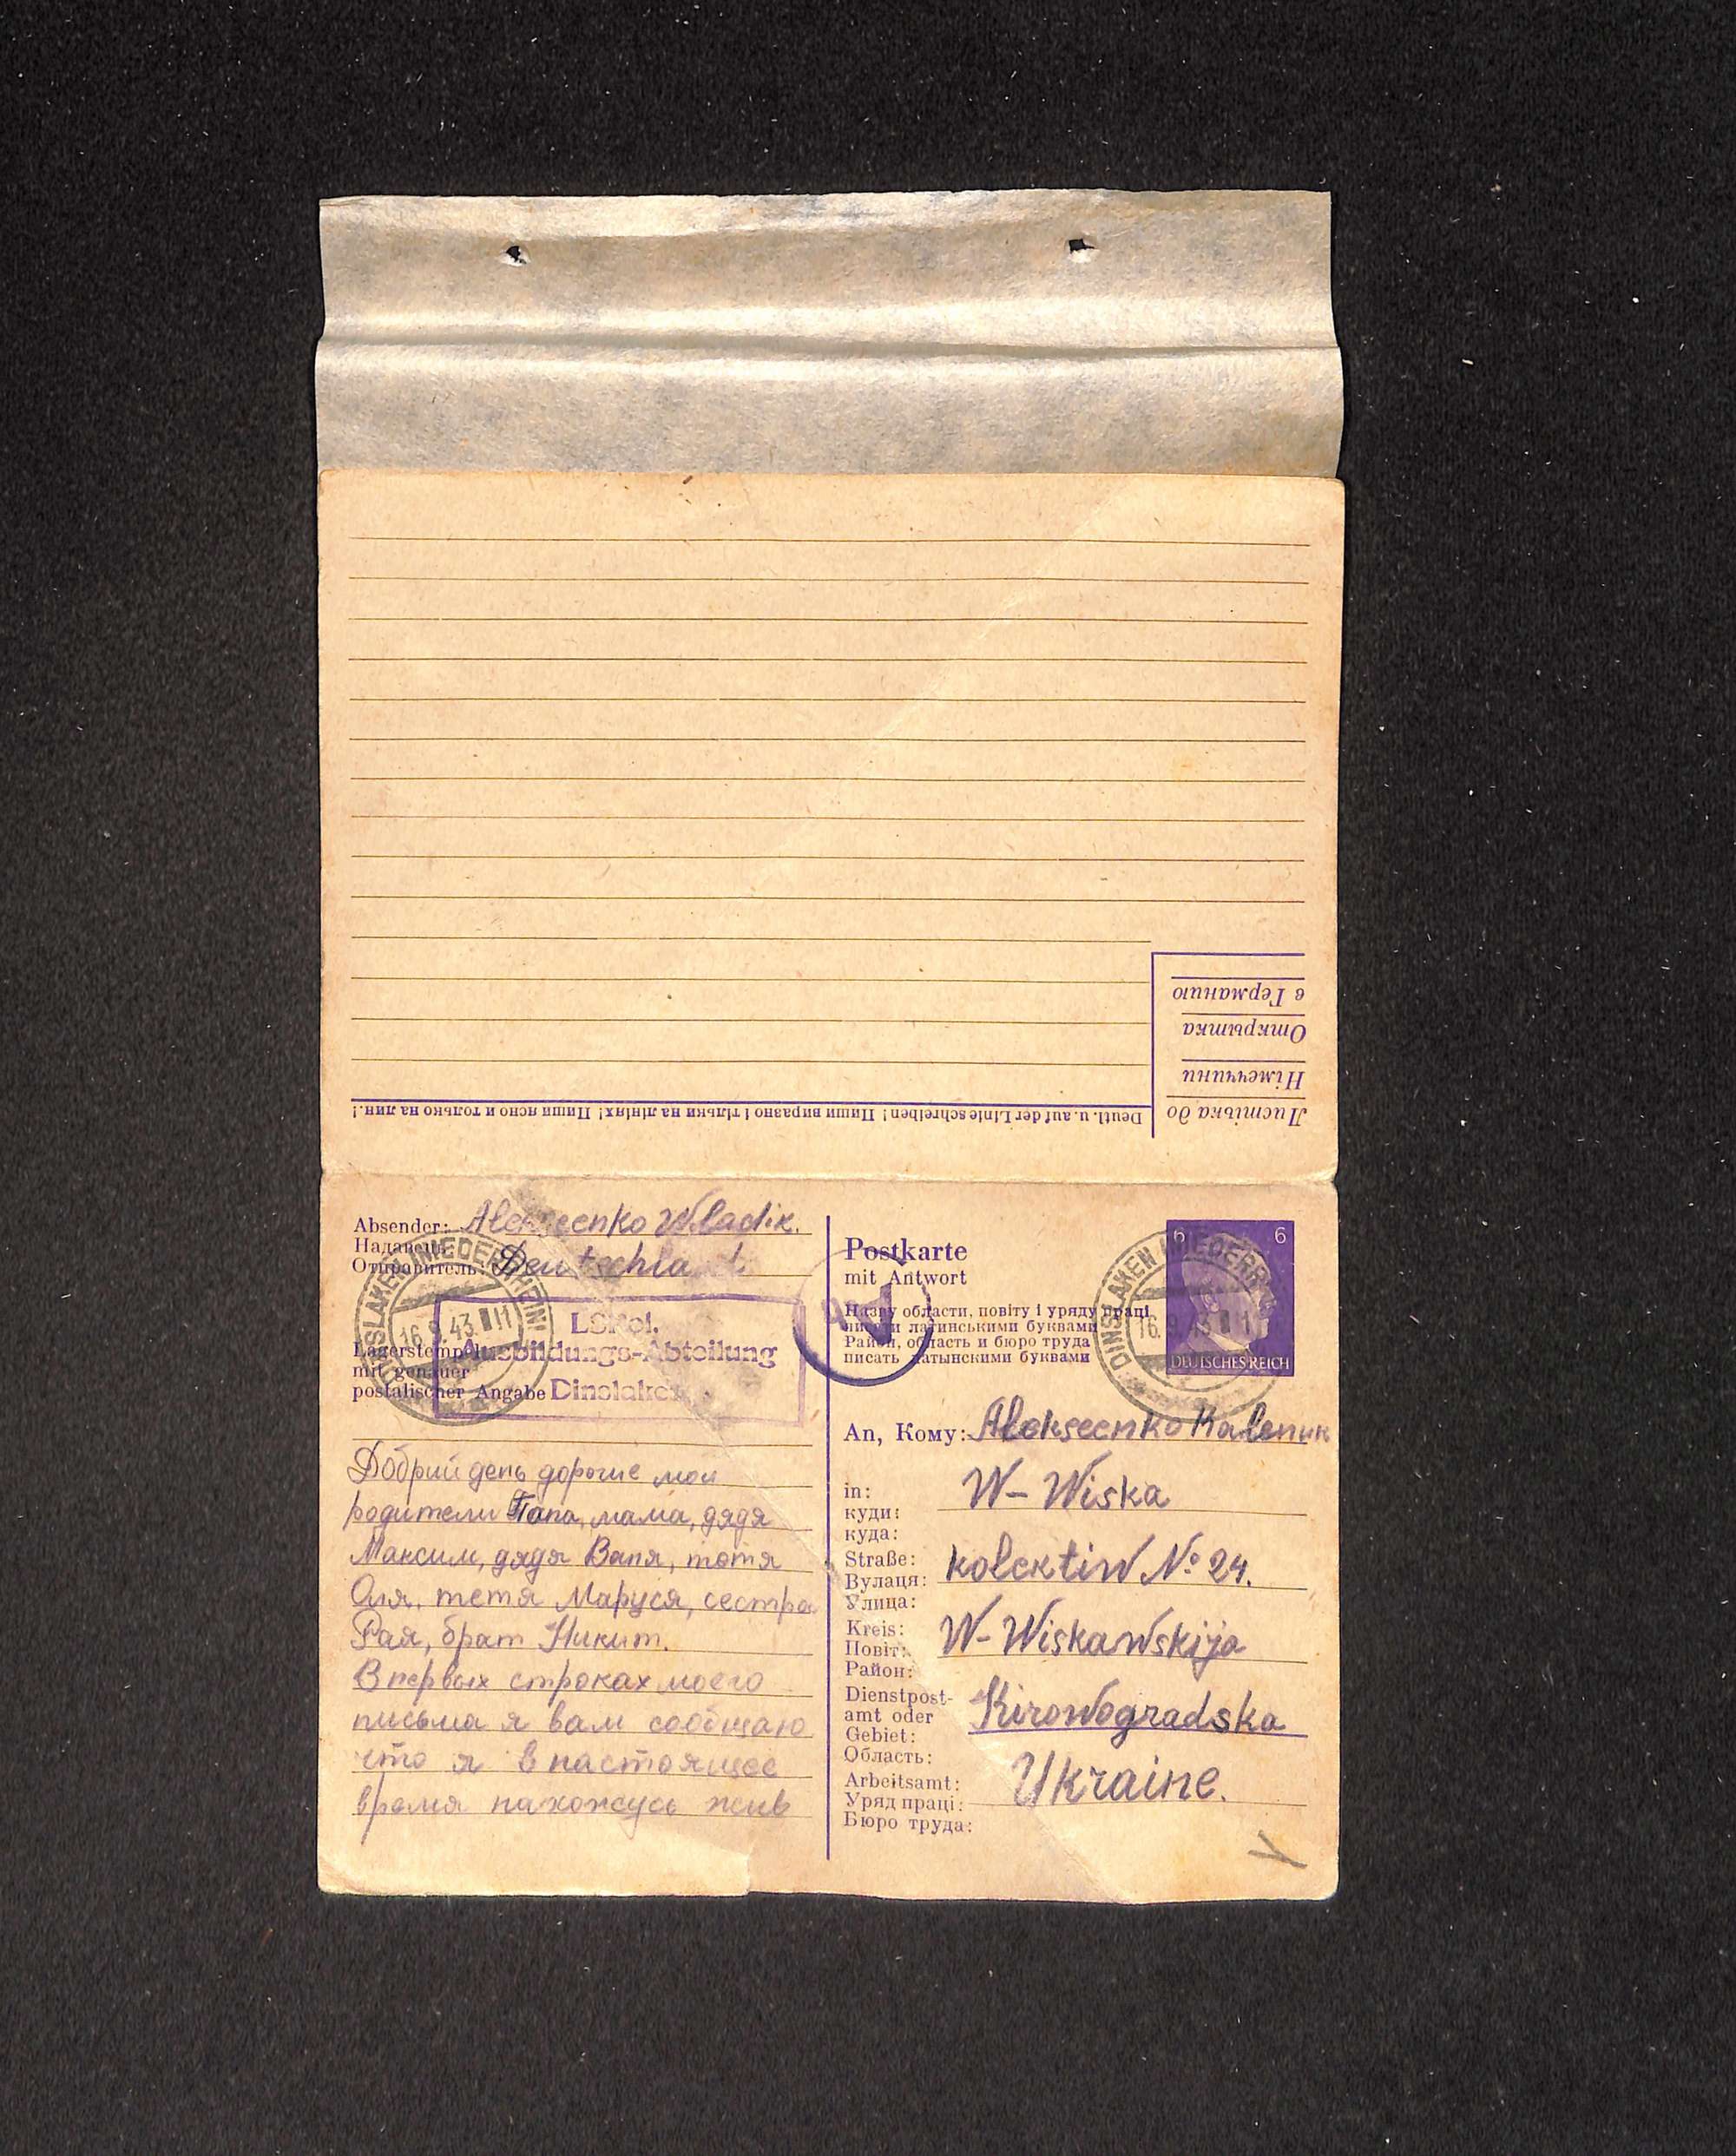 Листівка до
Німеччини
Открытка
в Германию
Deutl. u. auf der Linie schreiben! Пиши виразно і тільки на лініях! Пиши ясно и только на лин.!
Absender: Alekseenko Wladik.
Надавець:
Отправитель: Deutschland
DINSLAKEN (NIEDERRHEIN)
16.9.43. 11
Lagerstempel
mit genauer
postalischer Angabe
LSPol.
Ausbildungs-Abteilung
Dinslaken
Добрий день дорогие мои
родители Папа, мама, дядя
Максим, дядя Ваня, тотя
Оля, тетя Маруся, сестра
Рая, брат Никит.
В первых строках моего
письма я вам сообщаю
что я в настоящее
время нахожусь жив
Postkarte
mit Antwort
Назву области, повіту і уряду праці
писати латинськими буквами
Район, область и бюро труда
писать латынскими буквами
6 6
DEUTSCHES REICH
DINSLAKEN (NIEDERRHEIN)
16.9.43 11
An, Кому: Alekseenko Kalenik
in: W- Wiska
куди:
куда:
Straße: kolektiw № 24.
Вулаця:
Улица:
Kreis: W- Wiskawskija
Повіт:
Район:
Dienstpost-
amt oder Kirowogradska
Gebiet:
Область:
Arbeitsamt: Ukraine.
Уряд праці:
Бюро труда: